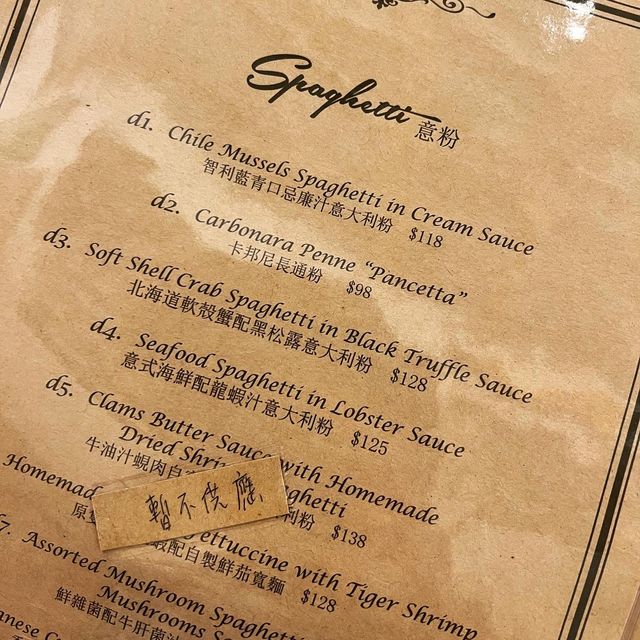 Spaghetti 意粉
d1. Chile Mussels Spaghetti in Cream Sauce
智利藍青口忌廉汁意大利粉 $118
d2. Carbonara Penne "Pancetta"
卡邦尼長通粉 $98
d3. Soft Shell Crab Spaghetti in Black Truffle Sauce
北海道軟殼蟹配黑松露意大利粉 $128
d4. Seafood Spaghetti in Lobster Sauce
意式海鮮配龍蝦汁意大利粉 $125
d5. Clams Butter Sauce with Homemade
Dried Shri ghetti
牛油汁蜆肉自 利粉 $138
暫不供應
Homemad Fettuccine with Tiger Shrimp
原 蝦配自製鮮茄寬麵 $128
7. Assorted Mushroom Spaghetti
Mushrooms
鮮雜菌配牛肝菌油